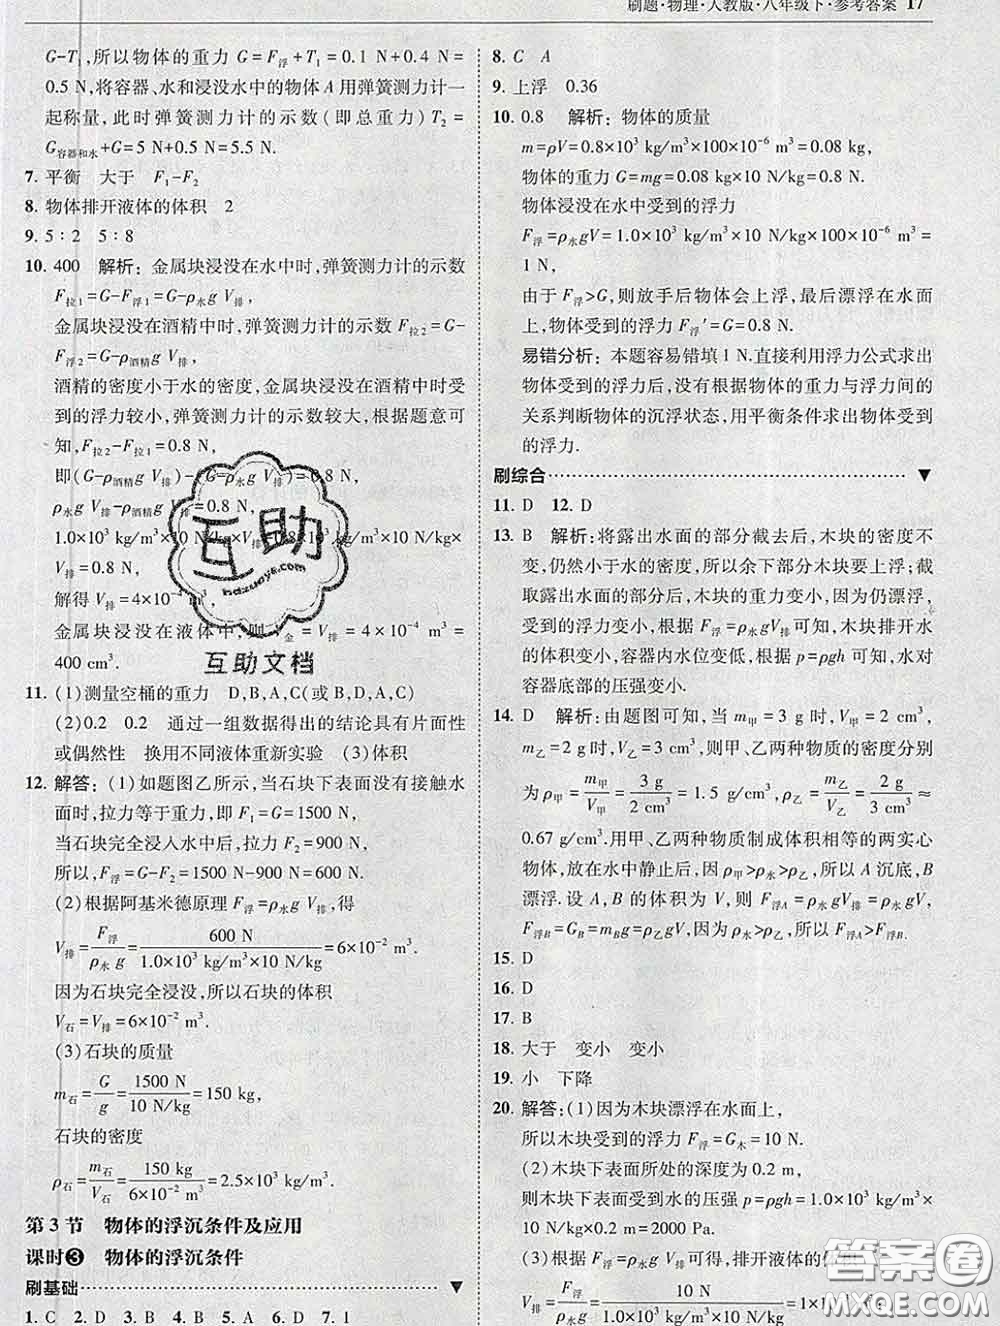 刷题·物理·人教版·八年级下·参考答案 17
G-T₁,所以物体的重力 G=F浮+T₁=0.1 N+0.4 N=
0.5 N,将容器、水和浸没水中的物体 A 用弹簧测力计一
起称量,此时弹簧测力计的示数(即总重力)T₂=
G容器和水+G=5 N+0.5 N=5.5 N.
7. 平衡 大于 F₁-F₂
8. 物体排开液体的体积 2
9. 5∶2 5∶8
10. 400 解析:金属块浸没在水中时,弹簧测力计的示数
F拉1=G-F浮1=G-ρ水g V排,
金属块浸没在酒精中时,弹簧测力计的示数 F拉2=G-
F浮2=G-ρ酒精g V排,
酒精的密度小于水的密度,金属块浸没在酒精中时受
到的浮力较小,弹簧测力计的示数较大,根据题意可
知,F拉2-F拉1=0.8 N,
即(G-ρ酒精g V排)-(G-ρ水g V排)=0.8 N,
ρ水g V排-ρ酒精g V排=0.8 N,
1.0×10³ kg/m³×10 N/kg×V排-
×V排=0.8 N,
解得 V排=4×10⁻⁴ m³,
金属块浸没在液体中,则 V金=V排=4×10⁻⁴ m³=
400 cm³.
11. (1)测量空桶的重力 D,B,A,C(或 B,D,A,C)
(2)0.2 0.2 通过一组数据得出的结论具有片面性
或偶然性 换用不同液体重新实验 (3)体积
12. 解答:(1)如题图乙所示,当石块下表面没有接触水
面时,拉力等于重力,即 F₁=G=1500 N
当石块完全浸入水中后,拉力 F₂=900 N,
所以,F浮=G-F₂=1500 N-900 N=600 N.
(2)根据阿基米德原理 F浮=ρ水g V排,得
V排=F浮/ρ水g=600 N/1.0×10³ kg/m³×10 N/kg=6×10⁻² m³.
因为石块完全浸没,所以石块的体积
V石=V排=6×10⁻² m³.
(3)石块的质量
m石=G/g=1500 N/10 N/kg=150 kg,
石块的密度
ρ石=m石/V石=150 kg/6×10⁻² m³=2.5×10³ kg/m³.
第 3 节 物体的浮沉条件及应用
课时❸ 物体的浮沉条件
刷基础
1. C 2. D 3. B 4. B 5. D 6. D 7.
8. C A
9. 上浮 0.36
10. 0.8 解析:物体的质量
m=ρV=0.8×10³ kg/m³×100×10⁻⁶ m³=0.08 kg,
物体的重力 G=mg=0.08 kg×10 N/kg=0.8 N,
物体浸没在水中受到的浮力
F浮=ρ水gV=1.0×10³ kg/m³×10 N/kg×100×10⁻⁶ m³=
1 N,
由于 F浮>G,则放手后物体会上浮,最后漂浮在水面
上,物体受到的浮力 F浮′=G=0.8 N.
易错分析:本题容易错填 1 N.直接利用浮力公式求出
物体受到的浮力后,没有根据物体的重力与浮力间的
关系判断物体的沉浮状态,用平衡条件求出物体受到
的浮力.
刷综合
11. D 12. D
13. B 解析:将露出水面的部分截去后,木块的密度不
变,仍然小于水的密度,所以余下部分木块要上浮;截
取露出水面的部分后,木块的重力变小,因为仍漂浮,
受到的浮力变小,根据 F浮=ρ水gV排可知,木块排开水
的体积变小,容器内水位变低,根据 p=ρgh 可知,水对
容器底部的压强变小.
14. D 解析:由题图可知,当 m甲=3 g 时,V甲=2 cm³,
m乙=2 g 时,V乙=3 cm³,则甲、乙两种物质的密度分别
为 ρ甲=m甲/V甲=3 g/2 cm³=1.5 g/cm³,ρ乙=m乙/V乙=2 g/3 cm³≈
0.67 g/cm³.用甲、乙两种物质制成体积相等的两实心
物体,放在水中静止后,因为 ρ甲>ρ水>ρ乙,所以 A 沉底,B
漂浮.设 A,B 的体积为 V,则 F浮A=ρ水gV排=ρ水gV,
F浮B=G_B=m_Bg=ρ乙gV,因为 ρ水>ρ乙,所以 F浮A>F浮B.
15. D
16. D
17. B
18. 大于 变小 变小
19. 小 下降
20. 解答:(1)因为木块漂浮在水面上,
所以木块受到的浮力 F浮=G木=10 N.
(2)木块下表面所处的深度为 0.2 m,
则木块下表面受到水的压强 p=ρgh=1.0×10³ kg/m³×
10 N/kg×0.2 m=2000 Pa.
(3)根据 F浮=ρ水g V排可得,排开液体的体积
V排=F浮/ρ水g=10 N/1.0×10³
互助
hdzuoye.com
互助文档
答案圈
MXQE.COM